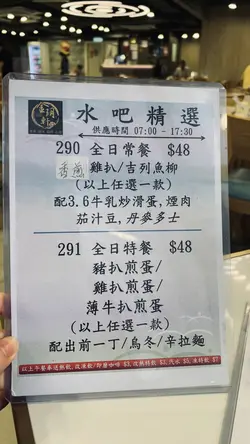 水吧精選
供應時間 07:00 - 17:30
290 全日常餐 $48
香煎 雞扒/吉列魚柳
(以上任選一款)
配3.6牛乳炒滑蛋,煙肉
茄汁豆, 丹麥多士
291 全日特餐 $48
豬扒煎蛋/
雞扒煎蛋/
薄牛扒煎蛋
(以上任選一款)
配出前一丁/烏冬/辛拉麵